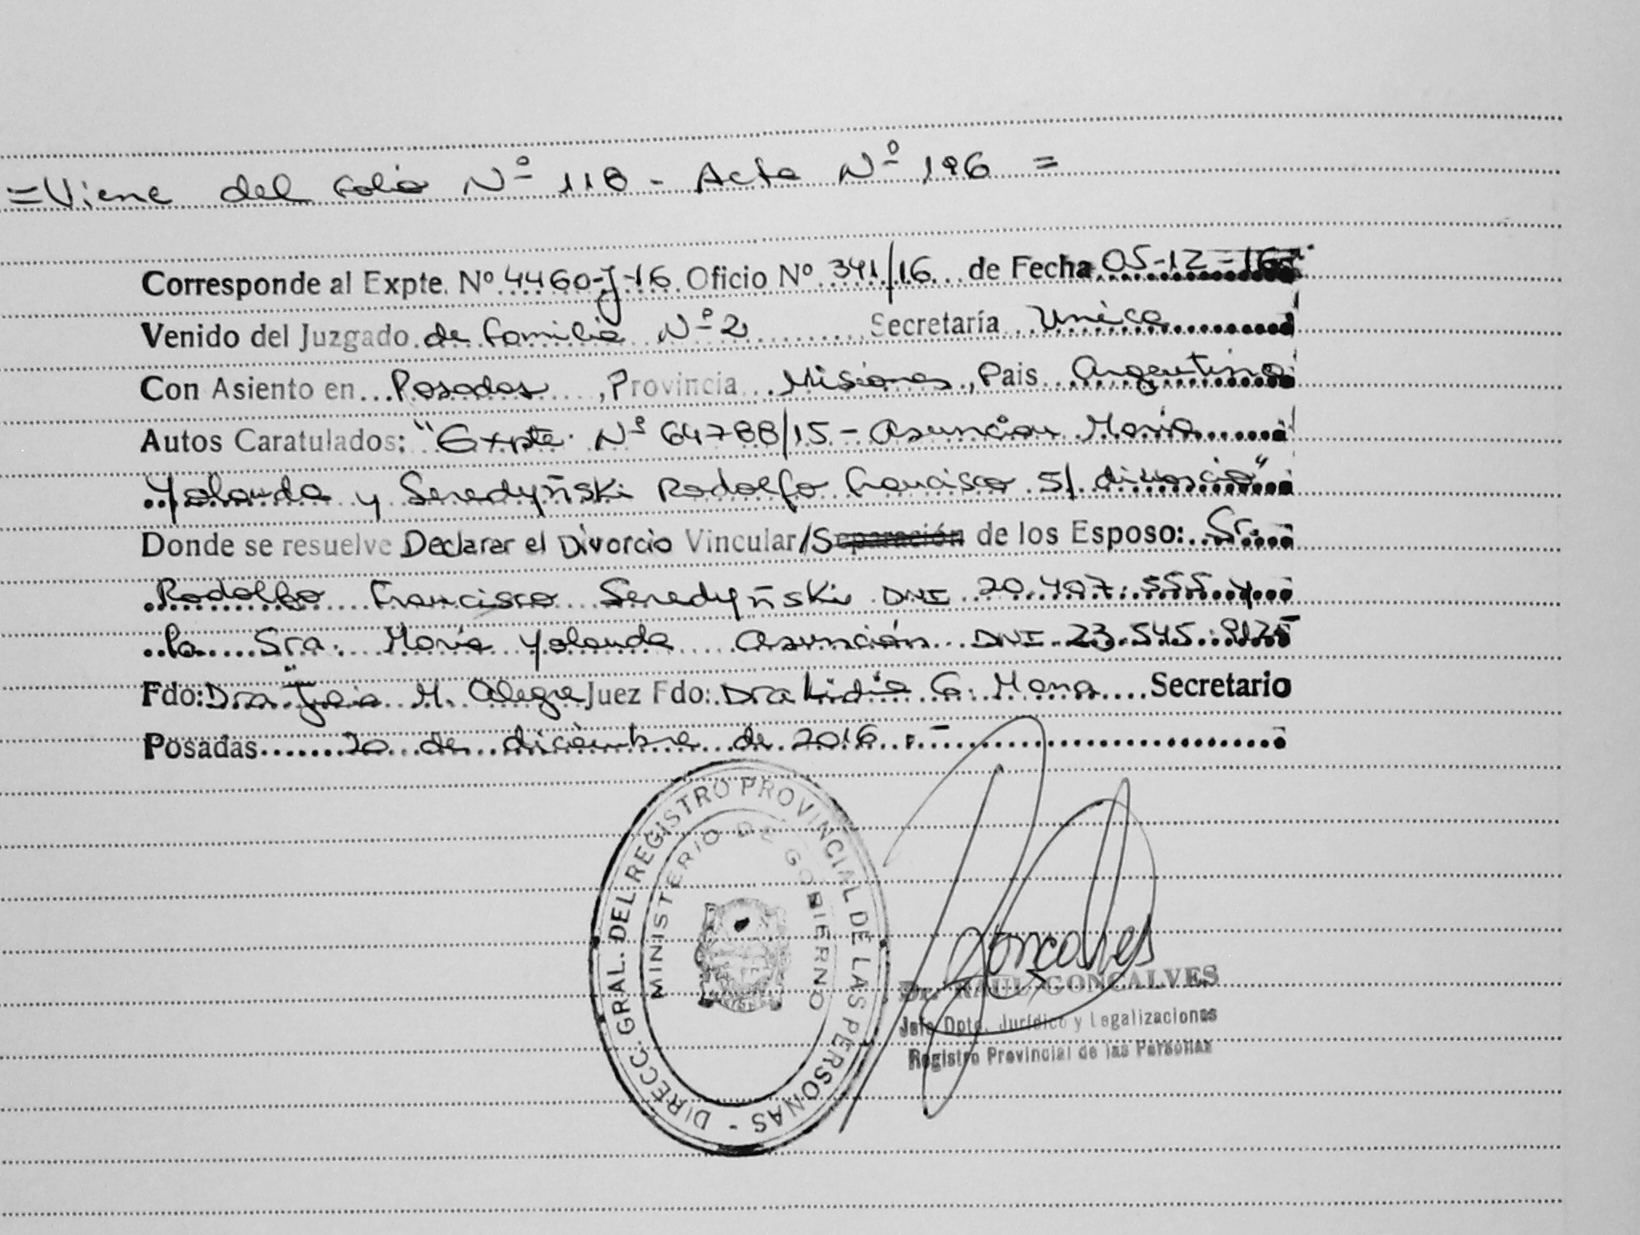 =Viene del folio Nº 118 - Acta Nº 196 =
Corresponde al Expte. Nº 4460-J-16 Oficio Nº 341/16 de Fecha 05-12-16
Venido del Juzgado de familia Nº 2 Secretaría Unica
Con Asiento en Posadas, Provincia Misiones, Pais Argentina
Autos Caratulados: "Expte. Nº 64788/15 - Asunción María
Yolanda y Seredyñski Rodolfo Francisco S/ divorcio"
Donde se resuelve Declarar el Divorcio Vincular/Separación de los Esposo: Sr.
Rodolfo Francisco Seredyñski DNI 20.497.555 y
la Sra. María Yolanda Asunción DNI 23.545
Fdo: Dra M. Alegre Juez Fdo: Dra Lidia G. Secretario
Posadas 20 de diciembre de 2016.-
DIRECC. GRAL. DEL REGISTRO PROVINCIAL DE LAS PERSONAS -
MINISTERIO DE GOBIERNO
Goncalves
Dr. RAUL GONCALVES
Jefe Dpto. Jurídico y Legalizaciones
Registro Provincial de las Personas